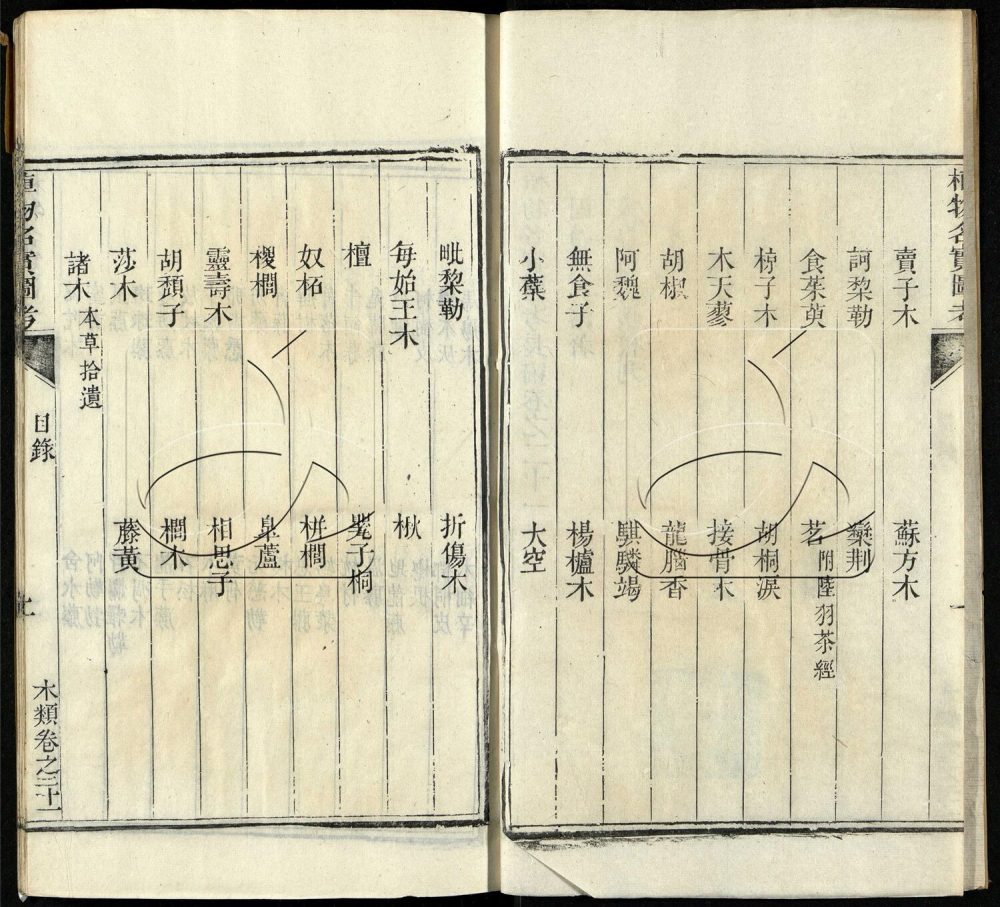 植物名實圖考
賣子木
蘇方木
訶黎勒
欒荆
食茱萸
茗 附陸羽茶經
椁子木
胡桐淚
木天蓼
接骨木
胡椒
龍腦香
阿魏
騏驎竭
無食子
楊櫨木
小蘗
大空
毗黎勒
折傷木
每始王木
楸
檀
罌子桐
奴柘
栟櫚
椶櫚
皐蘆
靈壽木
相思子
胡頹子
櫚木
莎木
藤黃
諸木 本草拾遺
植物名實圖考
目錄
木類卷之三十一